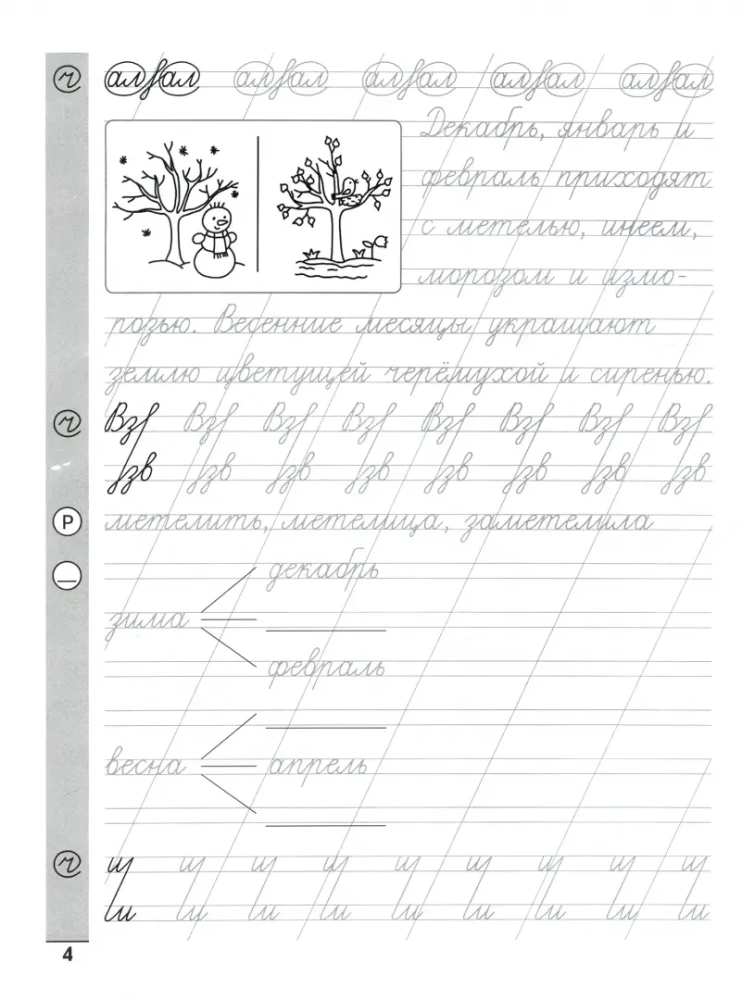 ч алвал алвал алвал алвал алвал
Декабрь, январь и
февраль приходят
с метелью, инеем,
морозом и измо-
розью. Весенние месяцы украшают
землю цветущей черёмухой и сиренью.
ч Взв Взв Взв Взв Взв Взв Взв Взв
взв взв взв взв взв взв взв взв
Р метелить, метелица, заметелила
декабрь
зима
февраль
весна апрель
ч щ щ щ щ щ щ щ щ щ
ш ш ш ш ш ш ш ш ш
4